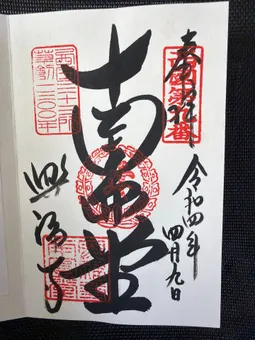 奉拝
令和四年
四月九日
西国第九番
南円堂
西国三十三所
草創一三〇〇年
興福寺